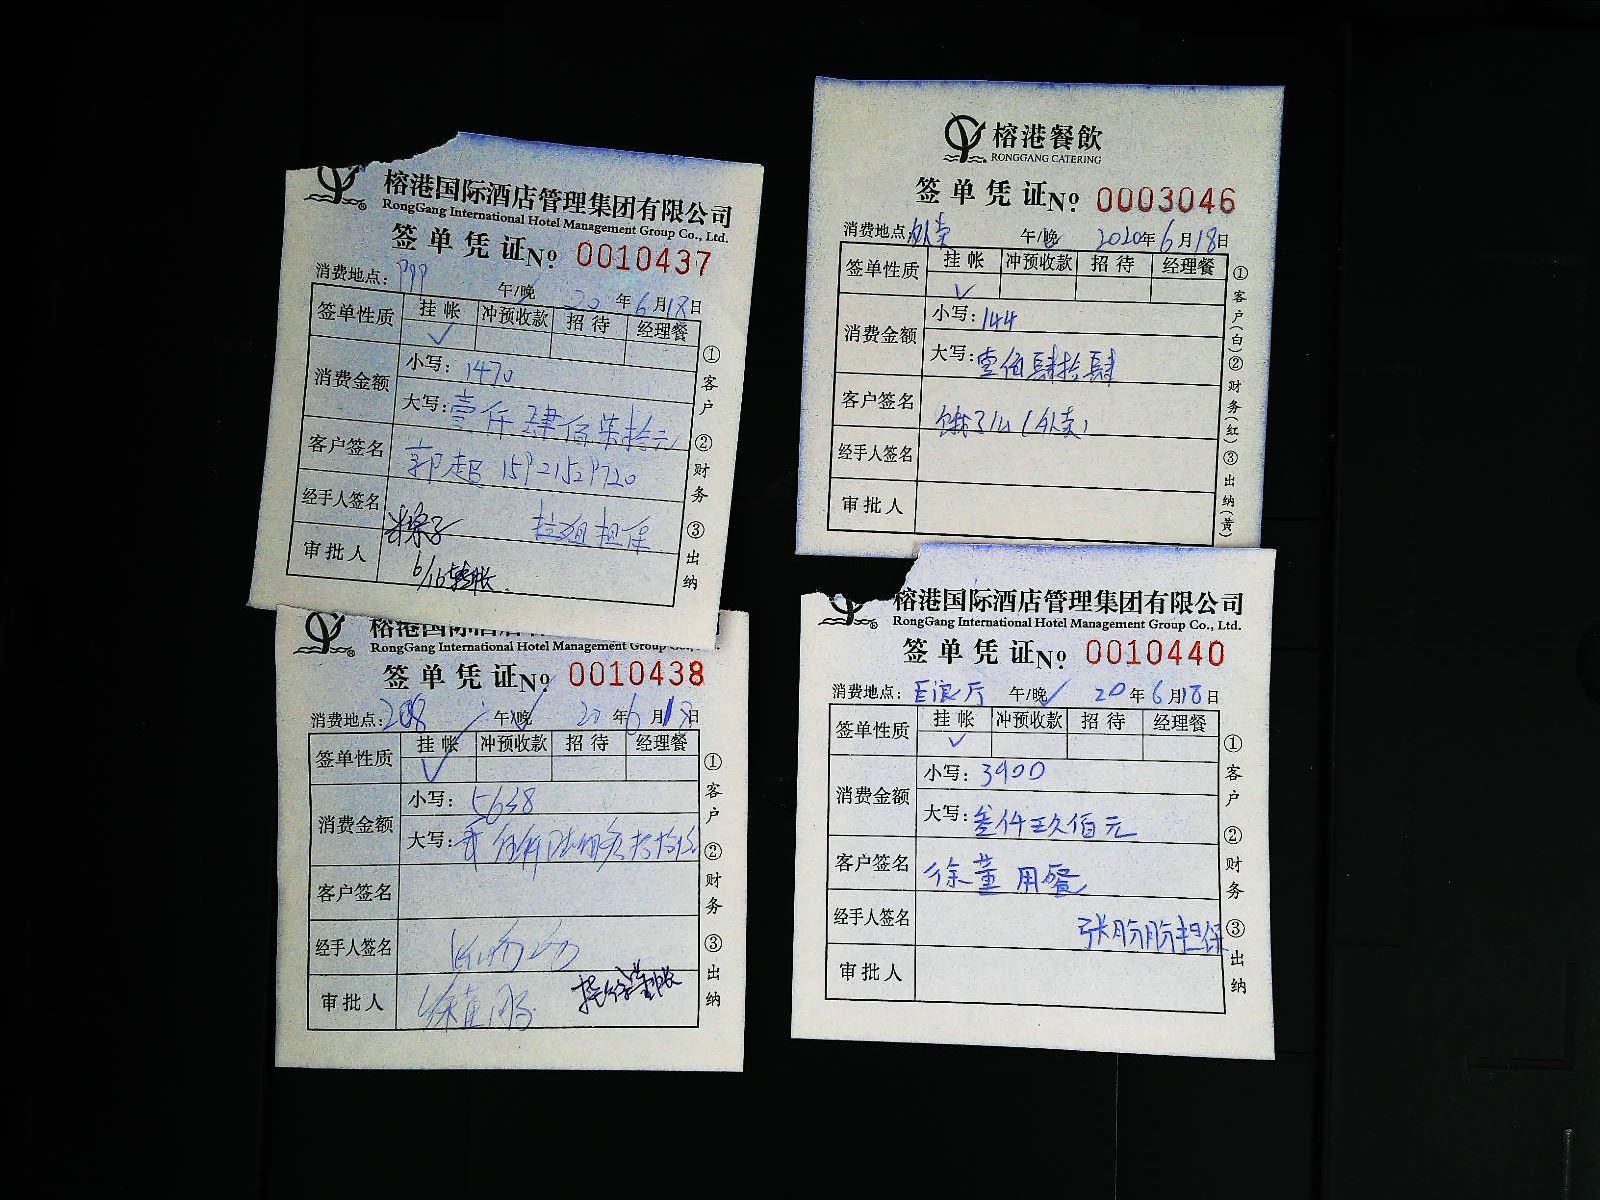 榕港国际酒店管理集团有限公司
RongGang International Hotel Management Group Co., Ltd.
签单凭证 No 0010437
消费地点: 午/晚 20年6月18日
签单性质 挂帐 冲预收款 招待 经理餐
✓
消费金额 小写: 1470
大写: 壹仟肆佰柒拾元
客户签名 郭超 15921529720
经手人签名 担保
审批人 6/18转帐
①客户 ②财务 ③出纳
榕港餐飲
RONGGANG CATERING
签单凭证 No 0003046
消费地点 外卖 午/晚 2020年6月18日
签单性质 挂帐 冲预收款 招待 经理餐
✓
消费金额 小写: 144
大写: 壹佰肆拾肆
客户签名 饿了么(外卖)
经手人签名
审批人
①客户(白)②财务(红)③出纳(黄)
RongGang International Hotel Management Group Co., Ltd.
签单凭证 No 0010438
消费地点: 208 午/晚 20年6月18日
签单性质 挂帐 冲预收款 招待 经理餐
✓
消费金额 小写: 5638
大写:
客户签名
经手人签名
审批人
①客户 ②财务 ③出纳
榕港国际酒店管理集团有限公司
RongGang International Hotel Management Group Co., Ltd.
签单凭证 No 0010440
消费地点: 午/晚 ✓ 20年6月18日
签单性质 挂帐 冲预收款 招待 经理餐
✓
消费金额 小写: 3900
大写: 叁仟玖佰元
客户签名 徐董用餐
经手人签名 张盼盼担保
审批人
①客户 ②财务 ③出纳